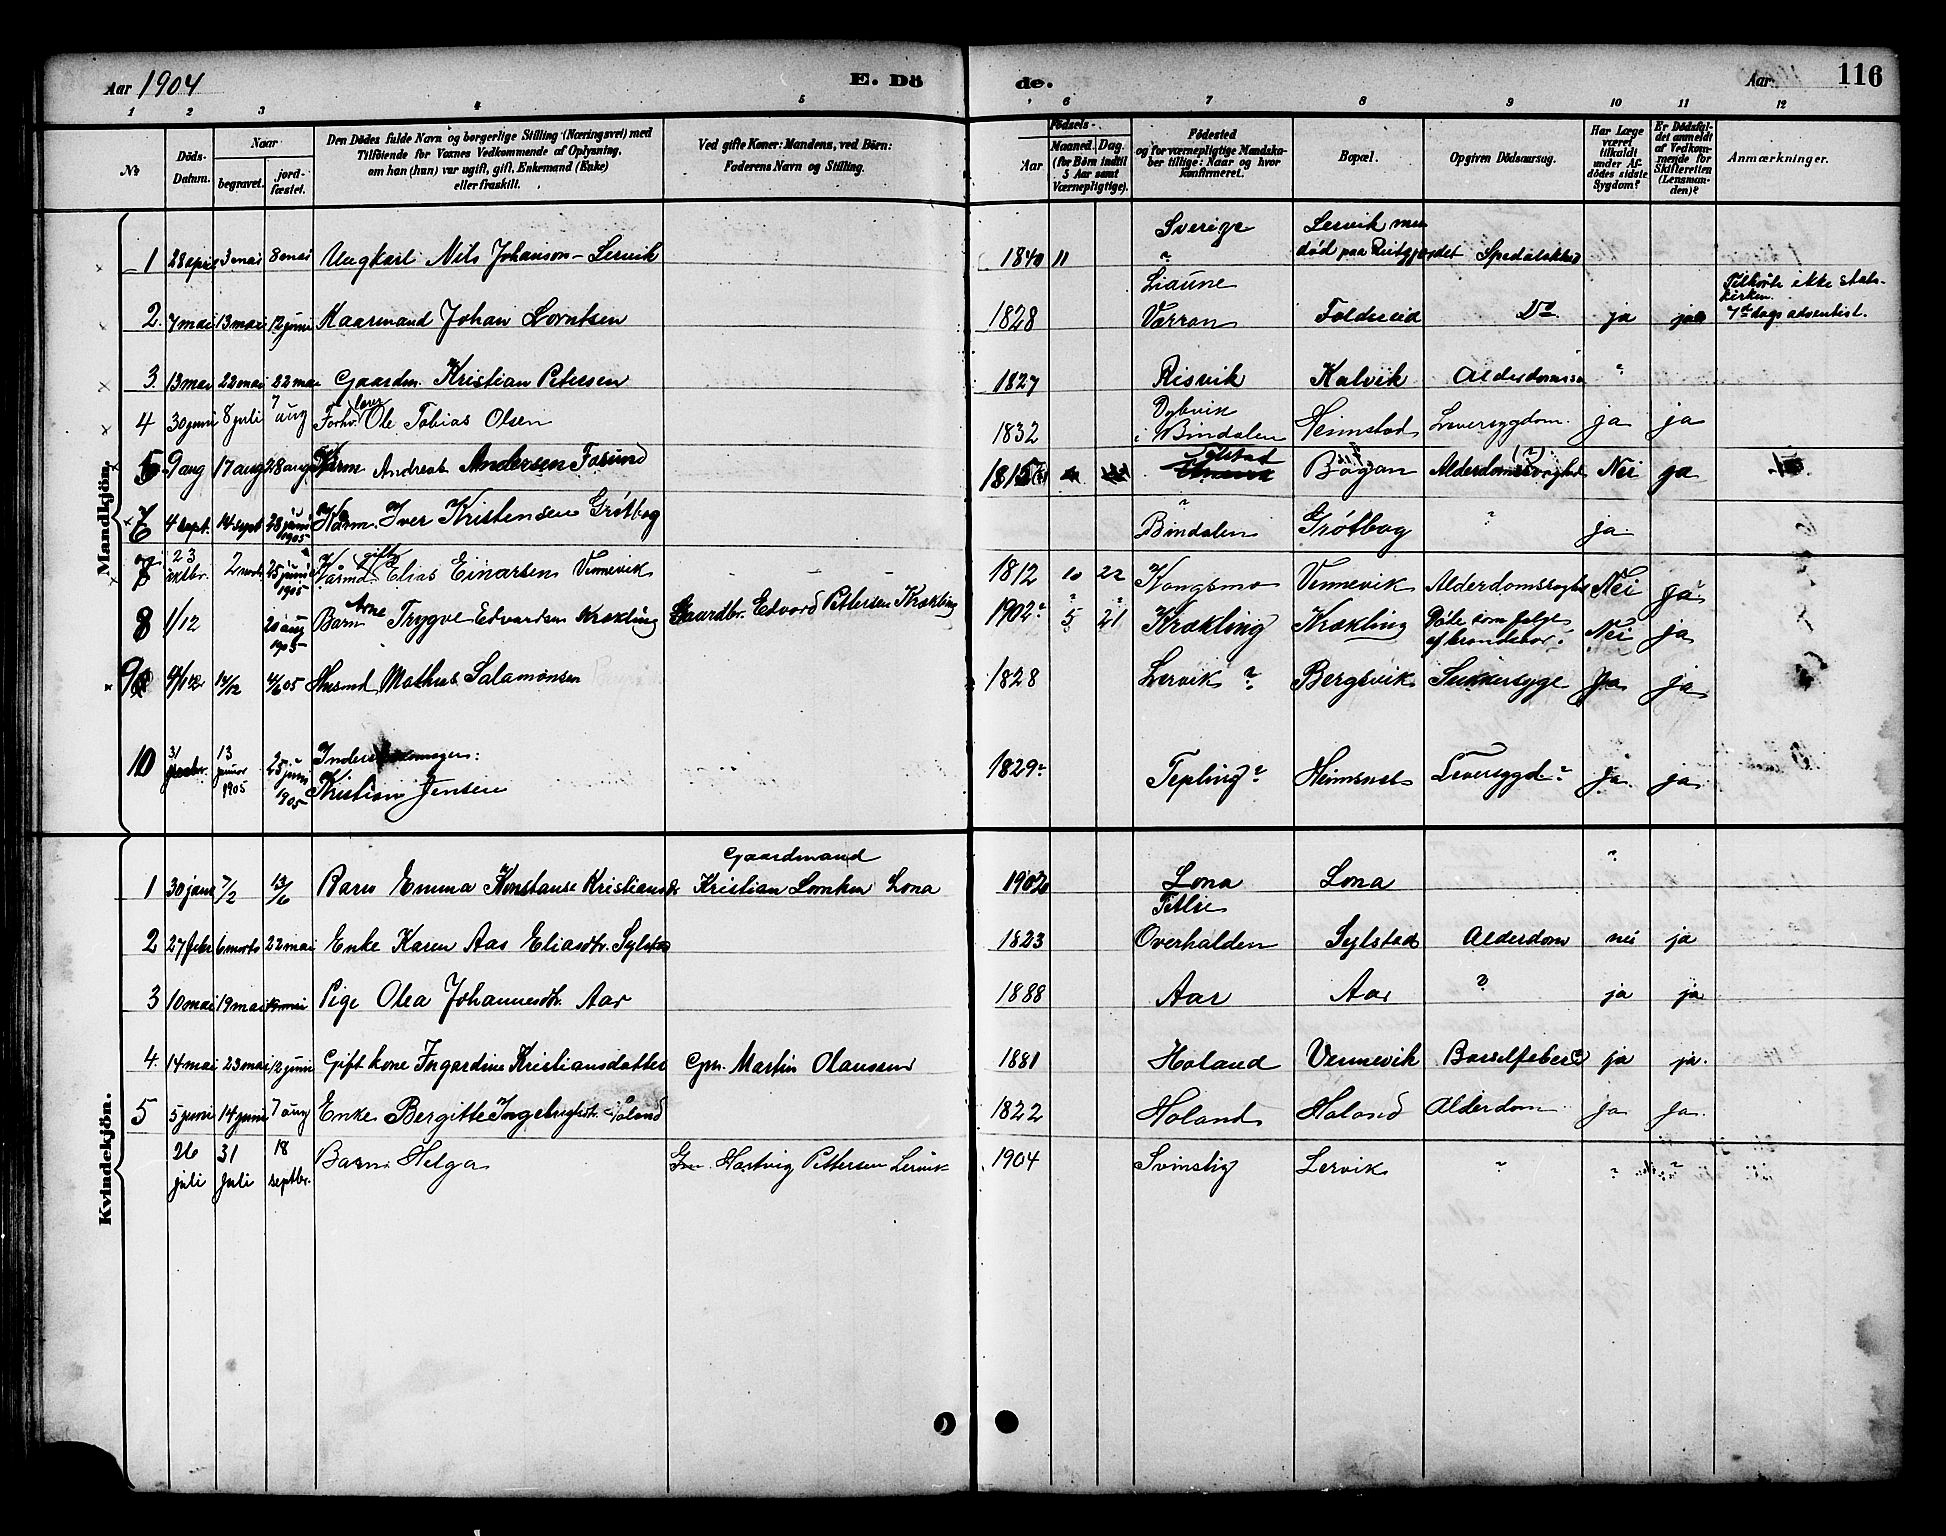 Aar 1904 E. Döde. Aar 116
1 2 3 4 5 6 7 8 9 10 11 12
No
Döds-Datum.
Naar
begravet.
jordfæstet.
Den Dödes fulde Navn og borgerlige Stilling (Næringsvei) med
Tilföiende for Voxnes Vedkommende af Oplysning,
om han (hun) var ugift, gift, Enkemand (Enke)
eller fraskilt.
Ved gifte Koner: Mandens, ved Börn:
Faderens Navn og Stilling.
Födsels-
Aar
Maaned. Dag.
(for Börn indtil
5 Aar samt
Værnepligtige).
Födested
og for værnepligtige Mandskaber
tillige: Naar og hvor
konfirmeret.
Bopæl.
Opgiven Dödsaarsag.
Har Læge
været
tilkaldt
under Afdödes
sidste
Sygdom?
Er Dödsfaldet
anmeldt
af Vedkommende
for
Skifteretten
(Lensmanden)?
Anmærkninger.
Mandkjön.
1 28 april 3 mai 8 mai Ungkarl Nils Johanson - Lervik 1840 11 Sverige Lervik men død paa Reitgjærdet Spedalskhed
2. 7 mai 13 mai 12 juni Kaarmand Johan Lorntsen 1828 Liaune Værran Foldereid Do ja ja Tilhørte ikke statskirken. 7de dags adventist.
3. 13 mai 22 mai 22 mai Gaardm. Kristian Petersen 1827 Risvik Kalvik Alderdomssv "
4 30 juni 8 juli 7 aug Forhv. lærer Ole Tobias Olsen 1832 Dybvik i Bindalen Heimstad Leversygdom. ja ja
5 9 aug 17 aug 28 aug Kårm Andreas Andersen Fosund 1815 Sylstad Bögan Alderdomssvaghed (?) Nei ja
6 4 sept. 14 sept 23 juni 1905 Kårm. Iver Kristensen Grøtbog " Bindalen Grøtbog " ja
7 23 oktbr. 2 novb 25 juni 1905 Kårmd. gift Elias Einarsen Vennevik 1812 10 22 Kongsmo Vennevik Alderdomssvaghed Nei ja
8 1/12 20 aug 1905 Barn Arne Trygve Edvardsen Krækling Gaardbr. Edvard Pettersen Krækling 1902 5 21 Krækling Krækling Døde som følge af brandebar. Nei ja
9 4/12 14/12 4/6 05 Husmd Mathias Salamonsen 1828 Lervik ? Bergsvik Sukkersyge Ja ja
10 31 13 januar 1905 25 juni 1905 Inderst
Kristian Jensen 1829 ? Tepling ? Heimsnes Leversygd ? Ja ja
Kvindekjön.
1 30 jan 7/2 13/6 Barn Emma Konstanse Kristiansdr Gaardmand Kristian Lorntsen Lona 1902 Lona Lona "
2 27 febr 6 marts 22 mai Enke Karen Aas Eliasdtr. Sylstad 1823 Overhalden Sylstad Alderdom nei ja
3 10 mai 19 mai 19 mai Pige Olea Johannesdtr. Aar 1888 Aar Aar ? ja ja
4. 14 mai 23 mai 12 juni Gift kone Ingardine Kristiansdatter Gm. Martin Olaussen 1881 Høland Vennevik Barselfeber ja ja.
5 5 juni 14 juni 7 aug Enke Bergitte Ingebrigtsdt. Høland 1822 Høland Høland Alderdom ja ja
26 juli 31 juli 18 septbr. Barn Helga Gm. Hartvig Pettersen Lervik 1904 Svinstig Lervik " " "